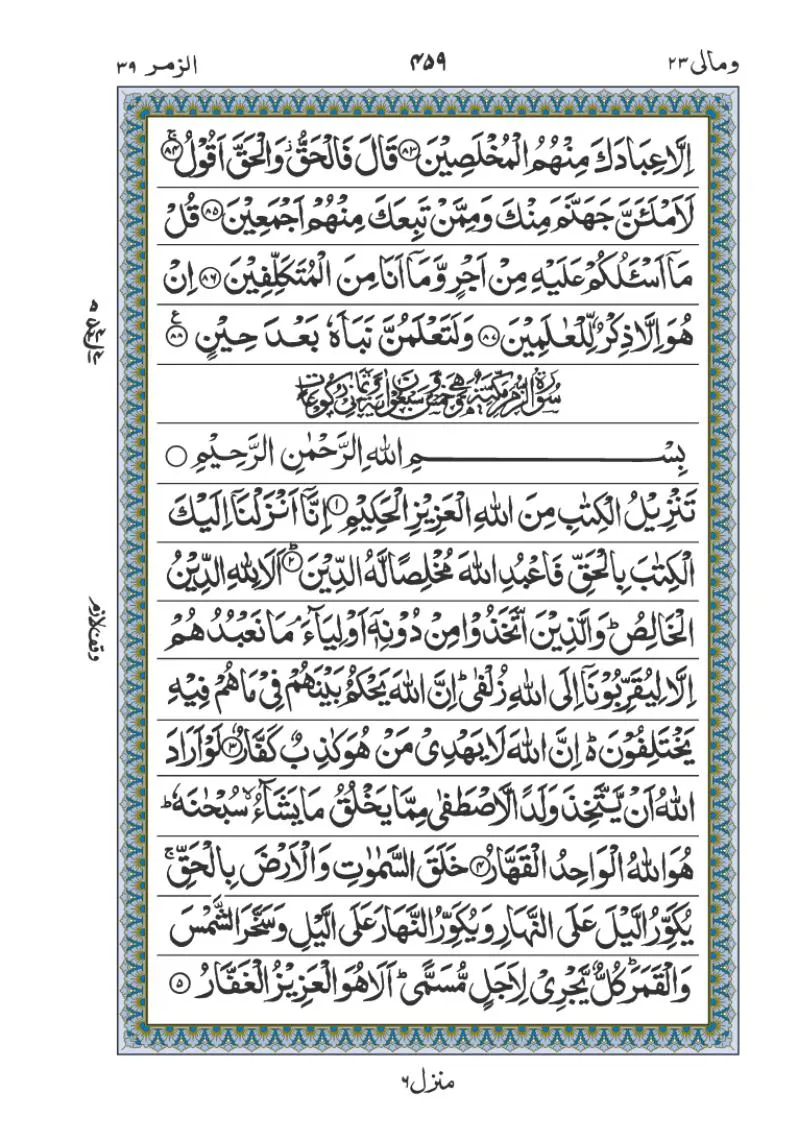 ومالی ۲۳
۴۵۹
الزمر ۳۹
اِلَّا عِبَادَكَ مِنْهُمُ الْمُخْلَصِيْنَ ﴿۸۳﴾ قَالَ فَالْحَقُّ ۫ وَالْحَقَّ اَقُوْلُ ﴿ۚ۸۴﴾
لَاَمْلَـَٔنَّ جَهَنَّمَ مِنْكَ وَمِمَّنْ تَبِعَكَ مِنْهُمْ اَجْمَعِيْنَ ﴿۸۵﴾ قُلْ
مَاۤ اَسْـَٔلُكُمْ عَلَيْهِ مِنْ اَجْرٍ وَّمَاۤ اَنَا مِنَ الْمُتَكَلِّفِيْنَ ﴿۸۶﴾ اِنْ
هُوَ اِلَّا ذِكْرٌ لِّلْعٰلَمِيْنَ ﴿۸۷﴾ وَلَتَعْلَمُنَّ نَبَاَهٗ بَعْدَ حِيْنٍ ﴿۸۸﴾ ع
سُوْرَةُ الزُّمَرِ مَكِّيَّةٌ وَّهِيَ خَمْسٌ وَّسَبْعُوْنَ اٰيَةً وَّثَمَانِيْ رُكُوْعَاتٍ
بِسْمِ اللهِ الرَّحْمٰنِ الرَّحِيْمِ ○
تَنْزِيْلُ الْكِتٰبِ مِنَ اللهِ الْعَزِيْزِ الْحَكِيْمِ ﴿۱﴾ اِنَّاۤ اَنْزَلْنَاۤ اِلَيْكَ
الْكِتٰبَ بِالْحَقِّ فَاعْبُدِ اللهَ مُخْلِصًا لَّهُ الدِّيْنَ ﴿ؕ۲﴾ اَلَا لِلّٰهِ الدِّيْنُ
الْخَالِصُ ؕ وَالَّذِيْنَ اتَّخَذُوْا مِنْ دُوْنِهٖۤ اَوْلِيَآءَ ۘ مَا نَعْبُدُهُمْ
اِلَّا لِيُقَرِّبُوْنَاۤ اِلَى اللهِ زُلْفٰى ؕ اِنَّ اللهَ يَحْكُمُ بَيْنَهُمْ فِيْ مَا هُمْ فِيْهِ
يَخْتَلِفُوْنَ ؕ۬ اِنَّ اللهَ لَا يَهْدِىْ مَنْ هُوَ كٰذِبٌ كَفَّارٌ ﴿۳﴾ لَوْ اَرَادَ
اللهُ اَنْ يَّتَّخِذَ وَلَدًا لَّاصْطَفٰى مِمَّا يَخْلُقُ مَا يَشَآءُ ۙ سُبْحٰنَهٗ ؕ
هُوَ اللهُ الْوَاحِدُ الْقَهَّارُ ﴿۴﴾ خَلَقَ السَّمٰوٰتِ وَالْاَرْضَ بِالْحَقِّ ۚ
يُكَوِّرُ الَّيْلَ عَلَى النَّهَارِ وَيُكَوِّرُ النَّهَارَ عَلَى الَّيْلِ وَسَخَّرَ الشَّمْسَ
وَالْقَمَرَ ؕ كُلٌّ يَّجْرِىْ لِاَجَلٍ مُّسَمًّى ؕ اَلَا هُوَ الْعَزِيْزُ الْغَفَّارُ ﴿۵﴾
وقف لازم
منزل ۶